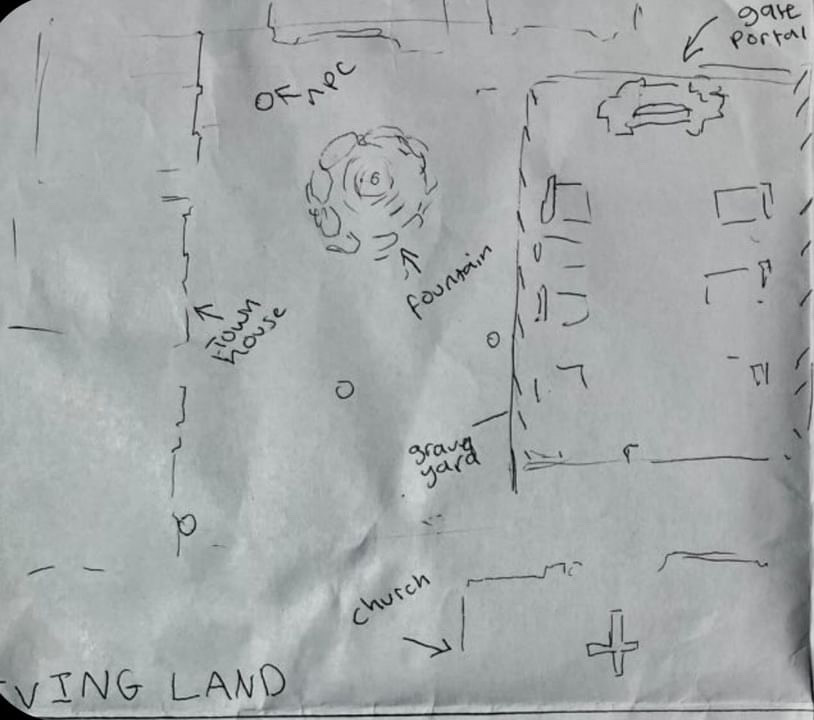 gate
portal
NPC
fountain
town
house
grave
yard
church
VING LAND